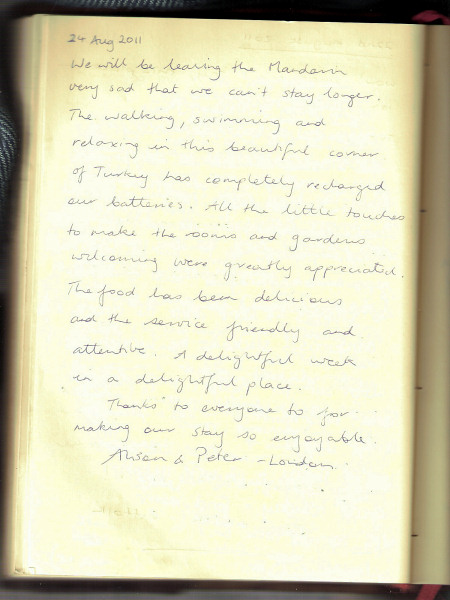 24 Aug 2011
We will be leaving the Mandarin
very sad that we can't stay longer.
The walking, swimming and
relaxing in this beautiful corner
of Turkey has completely recharged
our batteries. All the little touches
to make the rooms and gardens
welcoming were greatly appreciated.
The food has been delicious
and the service friendly and
attentive. A delightful week
in a delightful place.
Thanks to everyone to for
making our stay so enjoyable.
Alison & Peter - London